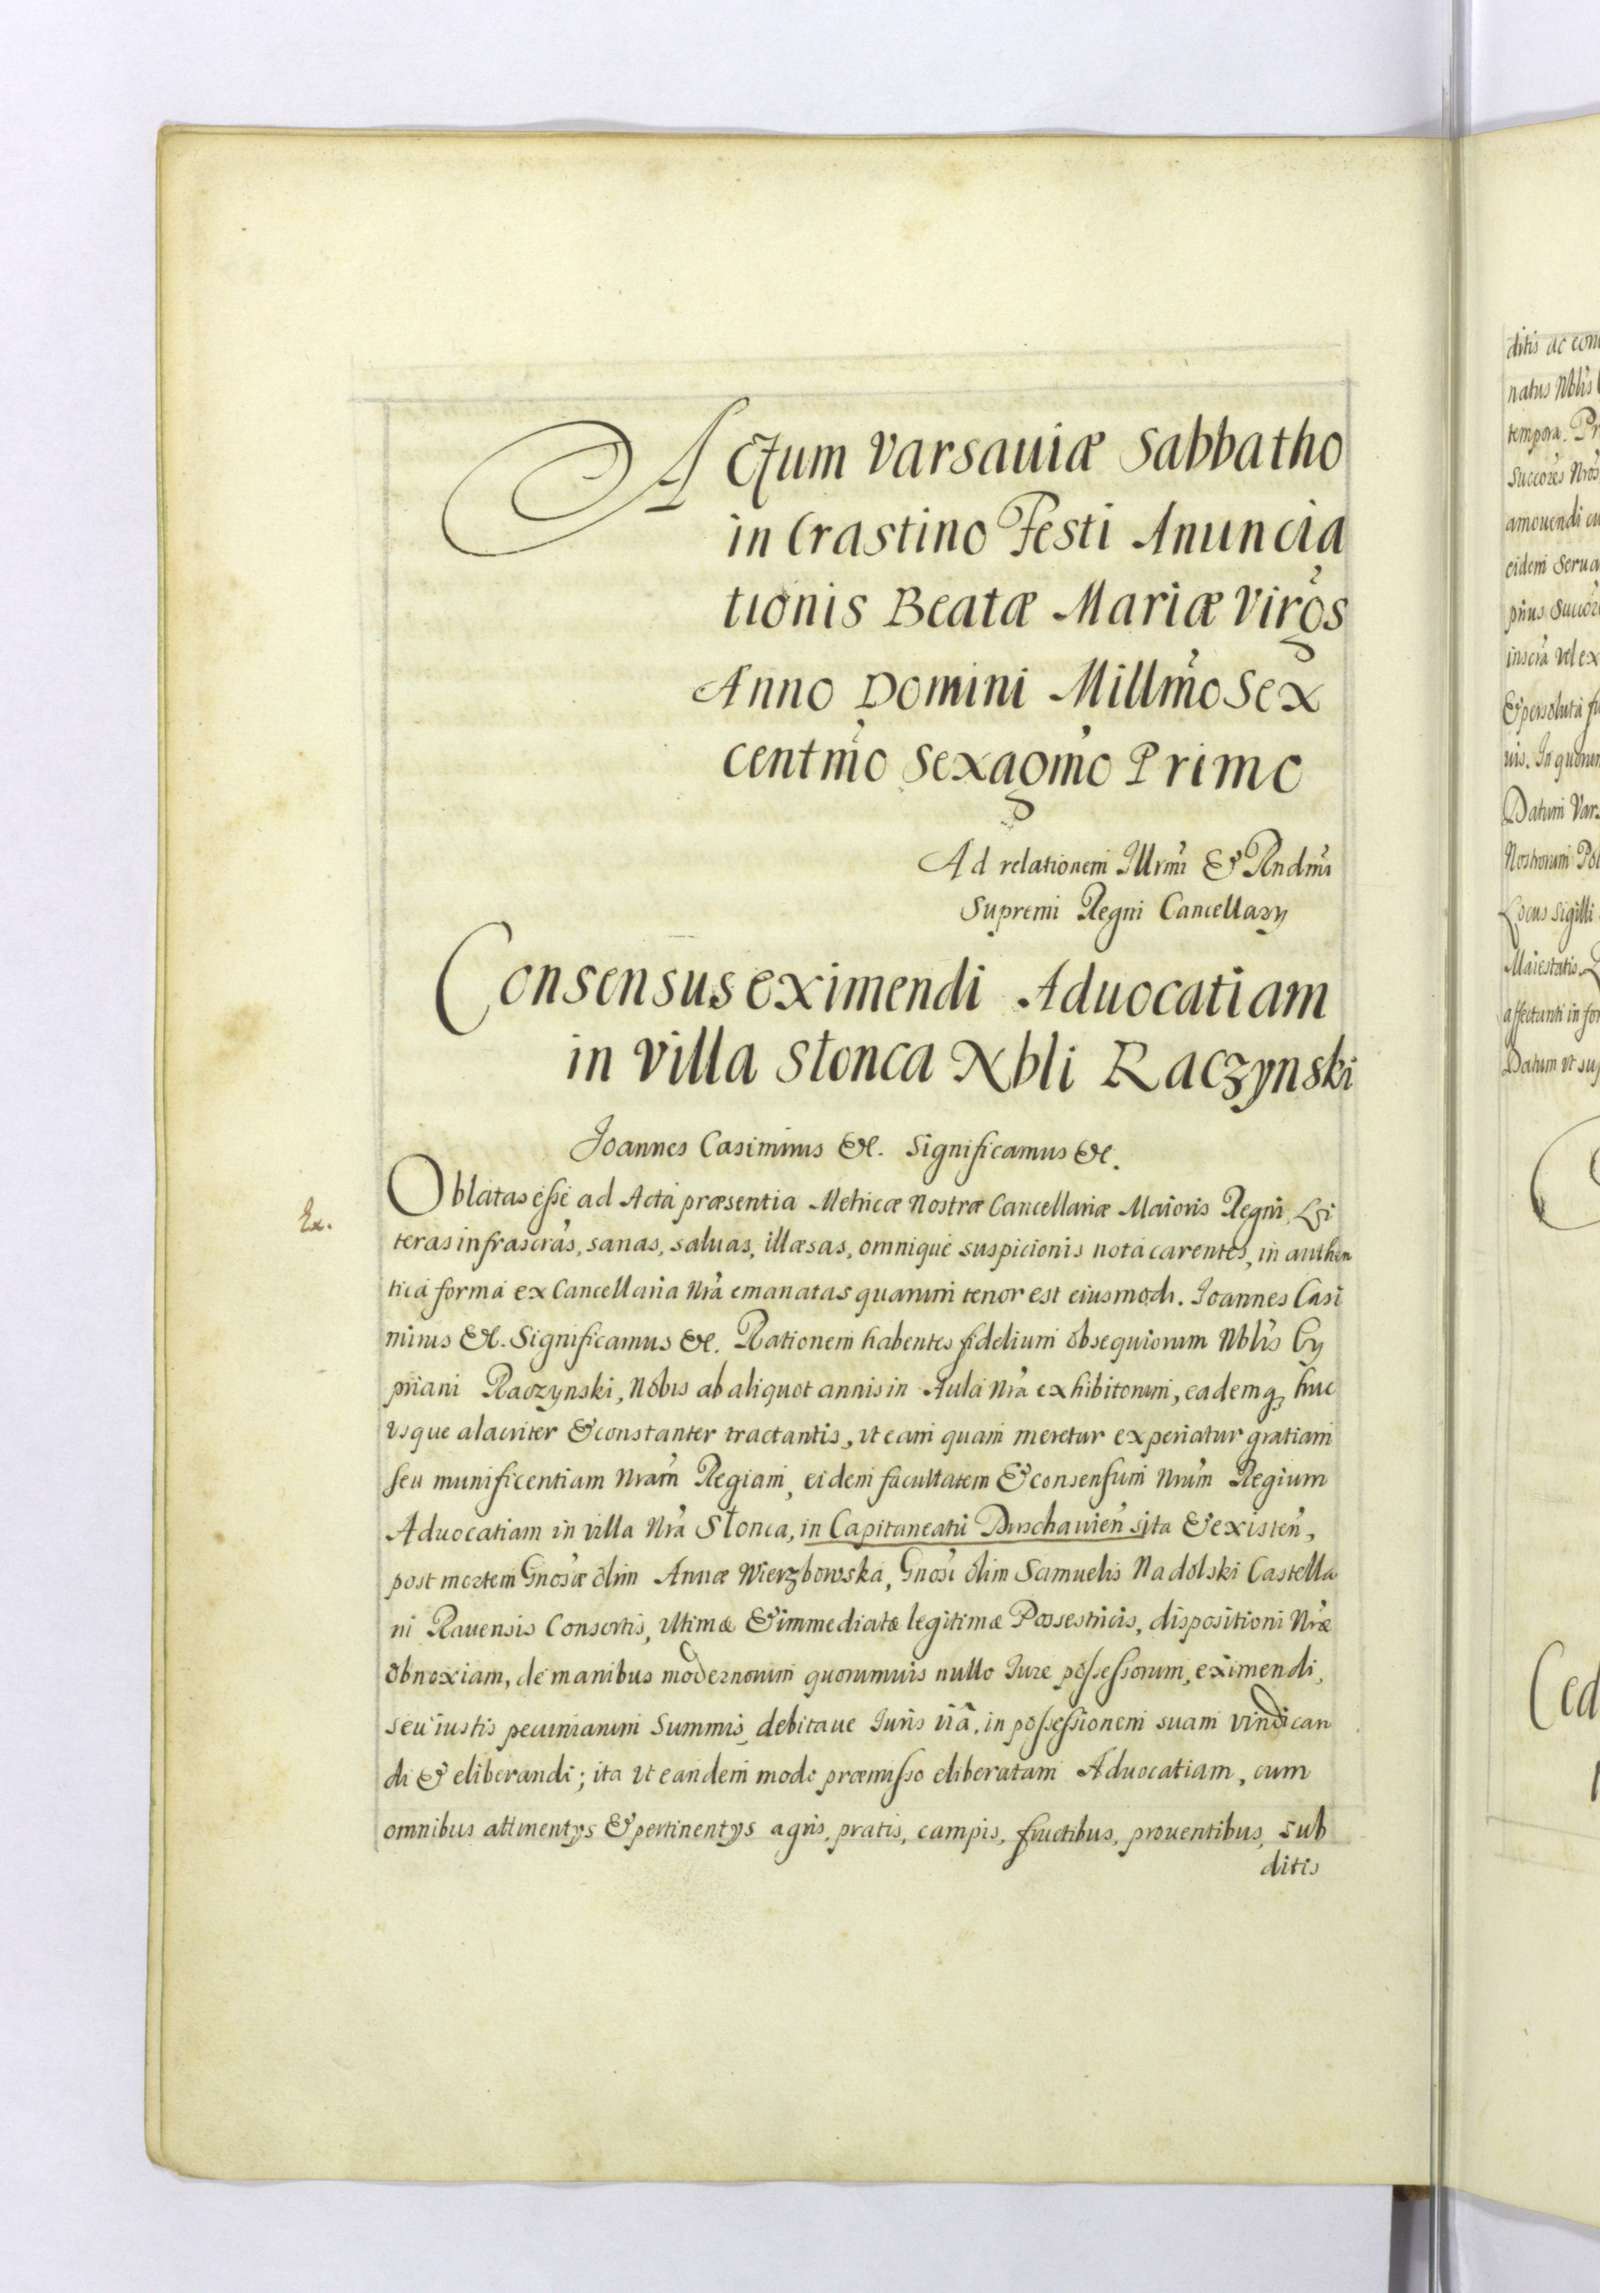 Actum Varsauiæ Sabbatho
in Crastino Festi Anuncia
tionis Beatæ Mariæ Virgs
Anno Domini Millmo Sex
centmo Sexagmo Primo
Ad relationem Illrmi & Rndmi
Supremi Regni Cancellary
Consensus eximendi Aduocatiam
in villa Słonca Nbli Raczynski
Joannes Casimirus &c. Significamus &c.
Ex.
Oblatas esse ad Acta præsentia Metricæ Nostræ Cancellariæ Maioris Regni, Li
teras infrascras, sanas, saluas, illæsas, omnique suspicionis nota carentes, in authen
tica forma ex Cancellaria Nra emanatas quarum tenor est eiusmodi. Joannes Casi
mirus &c. Significamus &c. Rationem habentes fidelium obsequiorum Nblis Cy
priani Raczynski, Nobis ab aliquot annis in Aula Nra exhibitorum, eademq, huc
vsque alacriter & constanter tractantis, vt eam quam meretur experiatur gratiam
seu munificentiam Nram Regiam, eidem facultatem & consensum Nrum Regium
Aduocatiam in villa Nra Słonca, in Capitaneatu Druschauien sita & existen,
post mortem Gnosæ olim Annæ Wierzbowska, Gnosi olim Samuelis Nadolski Castella
ni Rauensis Consortis, vltimæ & immediatæ legitimæ Possestricis, dispositioni Nræ
obnoxiam, de manibus modernorum quorumuis nullo Jure possessorum, eximendi,
seu iustis pecuniarum Summis, debitaue Juris via, in possessionem suam vindican
di & eliberandi; ita vt eandem modo præmisso eliberatam Aduocatiam, cum
omnibus attinentys & pertinentys agris, pratis, campis, fructibus, prouentibus, sub
ditis
ditis ac
natus Nblis
tempora.
Succores Nros
amouendi
eidem
inscra vel ex
Datum
Nostrorum
Locus Sigilli
Maiestatis
affectanti in
Datum vt